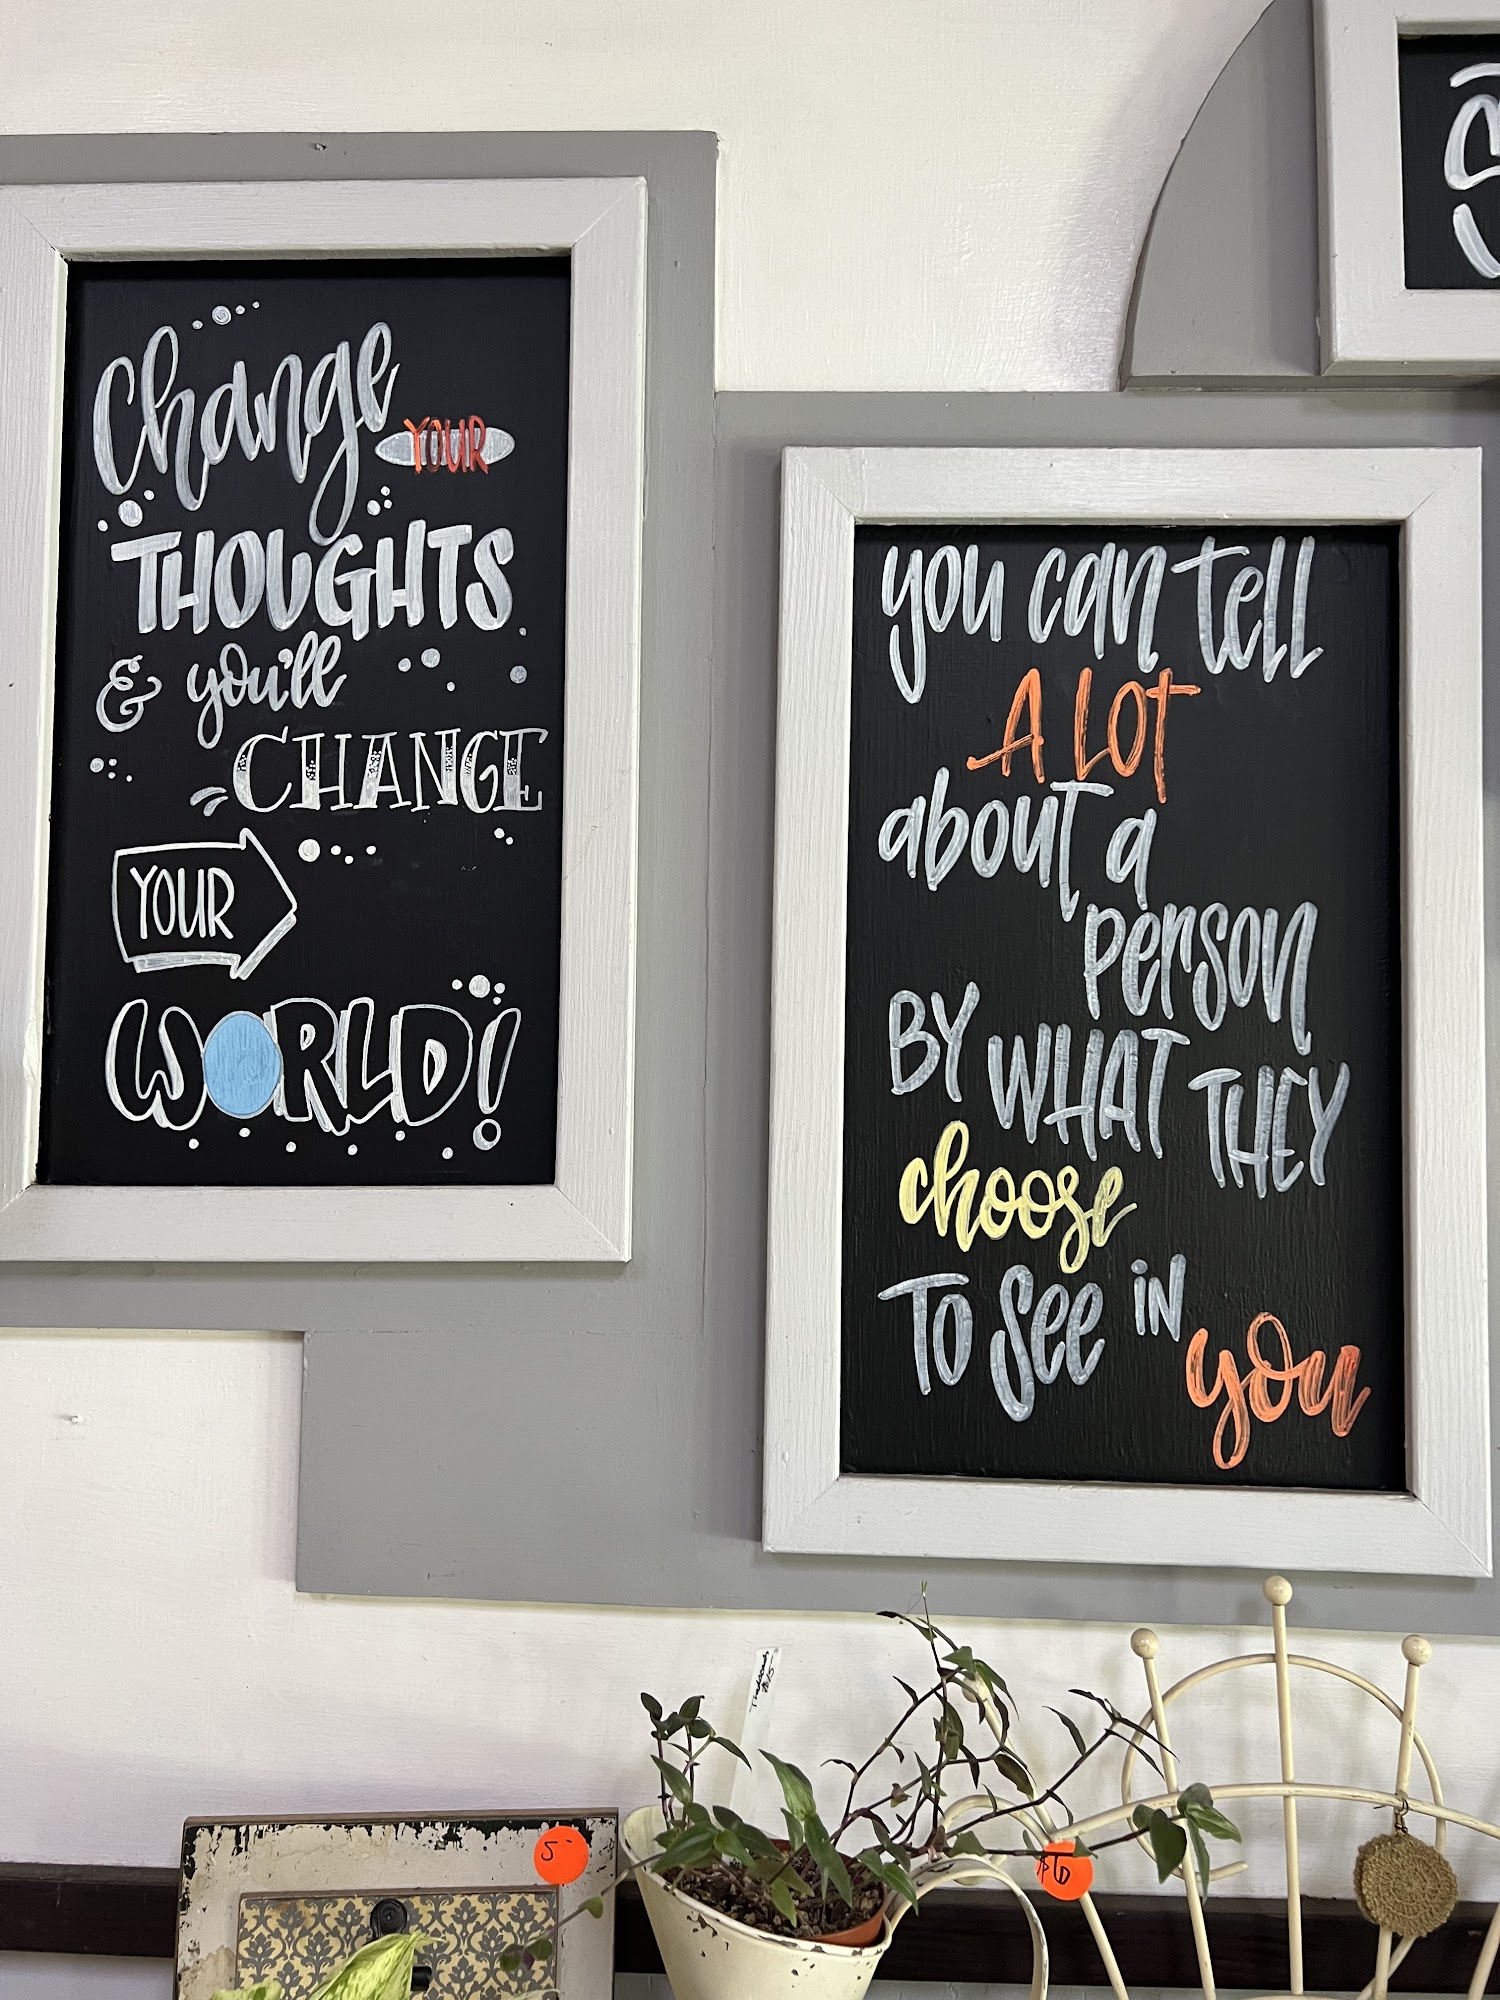 Change YOUR
THOUGHTS
& you'll
CHANGE
YOUR
WORLD!
you can tell
A LOT
about a
person
BY WHAT THEY
choose
TO See iN
you
5
$6